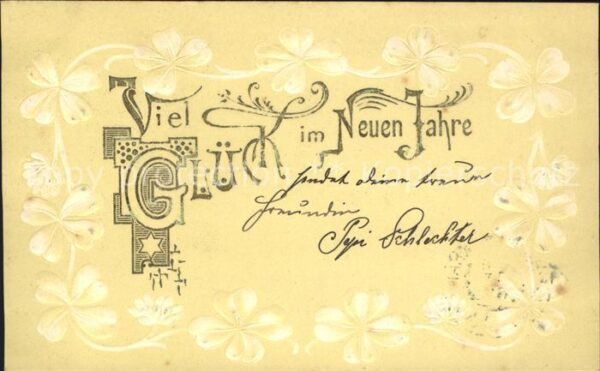 Viel
Glück im Neuen Jahre
sendet deine treue
Freundin
Pepi Schlechter